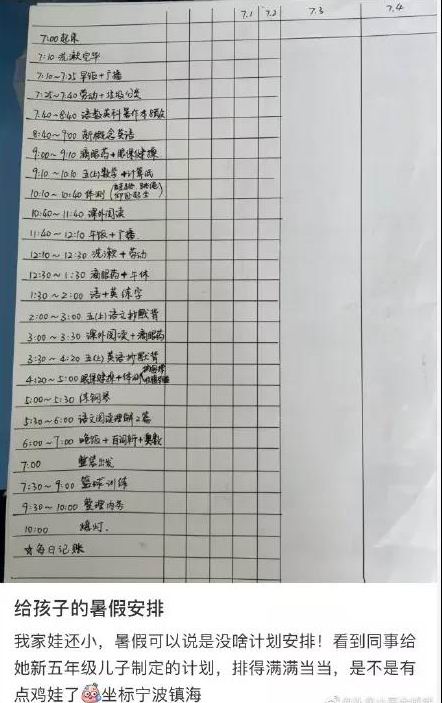 7.1 7.2 7.3 7.4
7:00 起床
7:10 洗漱完毕
7:10~7:25 早饭+广播
7:25~7:40 劳动+垃圾分类
7:40~8:40 语数英科暑作本
8:40~9:00 新概念英语
9:00~9:10 滴眼药+眼保健操
9:10~10:10 五(上)数学+计算纸
10:10~10:40 体测(跳绳 仰卧起坐)
10:40~11:40 课外阅读
11:40~12:10 午饭+广播
12:10~12:30 洗漱+劳动
12:30~1:30 滴眼药+午休
1:30~2:00 语+英练字
2:00~3:00 五(上)语文抄默背
3:00~3:30 课外阅读+滴眼药
3:30~4:20 五(上)英语抄默背
4:20~5:00 眼保健操+体测
5:00~5:30 练钢琴
5:30~6:00 语文阅读理解2篇
6:00~7:00 晚饭+新闻+奥数
7:00 整装出发
7:30~9:00 篮球训练
9:30~10:00 整理内务
10:00 熄灯.
☆每日记账
给孩子的暑假安排
我家娃还小，暑假可以说是没啥计划安排！看到同事给
她新五年级儿子制定的计划，排得满满当当，是不是有
点鸡娃了 坐标宁波镇海